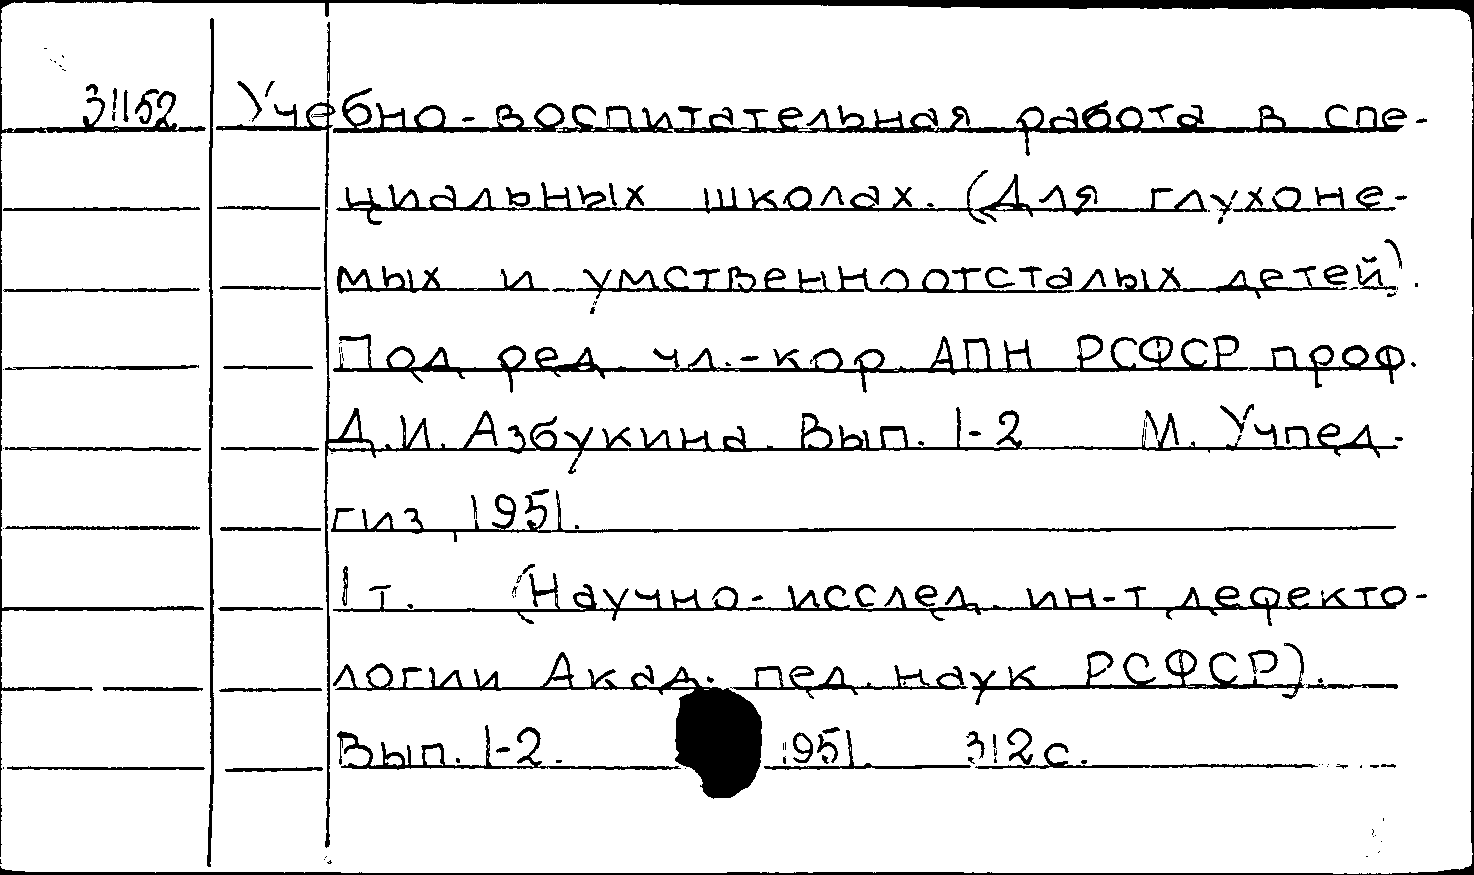 31152 Учебно-воспитательная работа в спе-
циальных школах. (Для глухоне-
мых и умственноотсталых детей).
Под ред. чл.-кор. АПН РСФСР проф.
Д.И. Азбукина. Вып. 1-2 М. Учпед-
гиз, 1951.
1 т. (Научно-исслед. ин-т дефекто-
логии Акад. пед. наук РСФСР).
Вып. 1-2. 1951. 312 с.